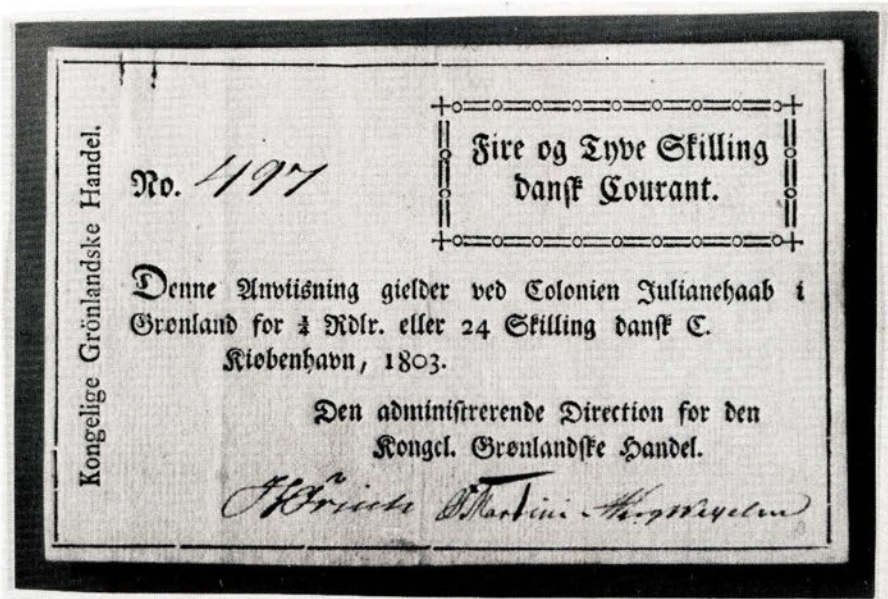 Kongelige Grönlandske Handel.
No. 497
Fire og Tyve Skilling
dansk Courant.
Denne Anviisning gielder ved Colonien Julianehaab i
Grønland for ¼ Rdlr. eller 24 Skilling dansk C.
Kiøbenhavn, 1803.
Den administrerende Direction for den
Kongel. Grønlandske Handel.
Martini